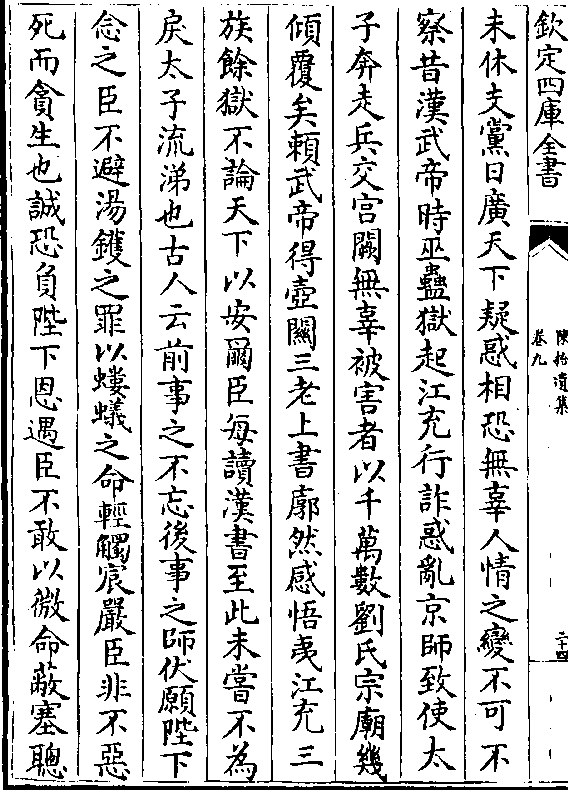 欽定四庫全書
陳拾遺集
卷九
二十四
未休支黨日廣天下疑惑相恐無辜人情之變不可不
察昔漢武帝時巫蠱獄起江充行詐惑亂京師致使太
子奔走兵交宫闕無辜被害者以千萬數劉氏宗廟幾
傾覆矣賴武帝得壺關三老上書廓然感悟夷江充三
族餘獄不論天下以安爾臣每讀漢書至此未嘗不為
戾太子流涕也古人云前事之不忘後事之師伏願陛下
念之臣不避湯鑊之罪以螻蟻之命輕觸宸嚴臣非不惡
死而貪生也誠恐負陛下恩遇臣不敢以微命蔽塞聰